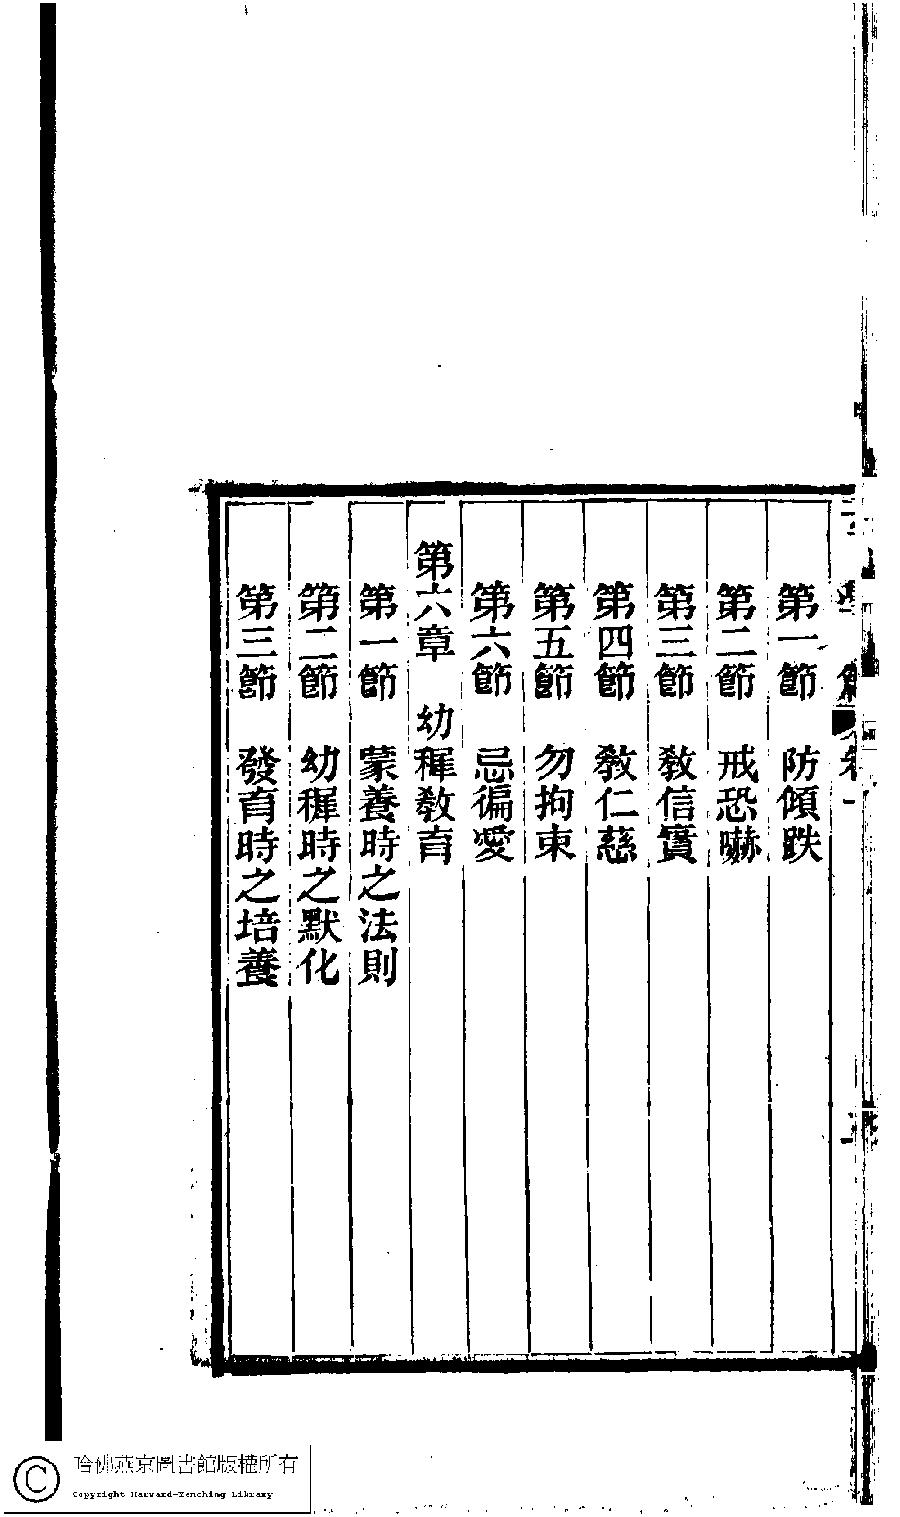 第一節　防傾跌
第二節　戒恐嚇
第三節　教信實
第四節　教仁慈
第五節　勿拘束
第六節　忌徧愛
第六章　幼穉教育
第一節　蒙養時之法則
第二節　幼穉時之默化
第三節　發育時之培養
哈佛燕京圖書館版權所有
Copyright Harvard-Yenching Library